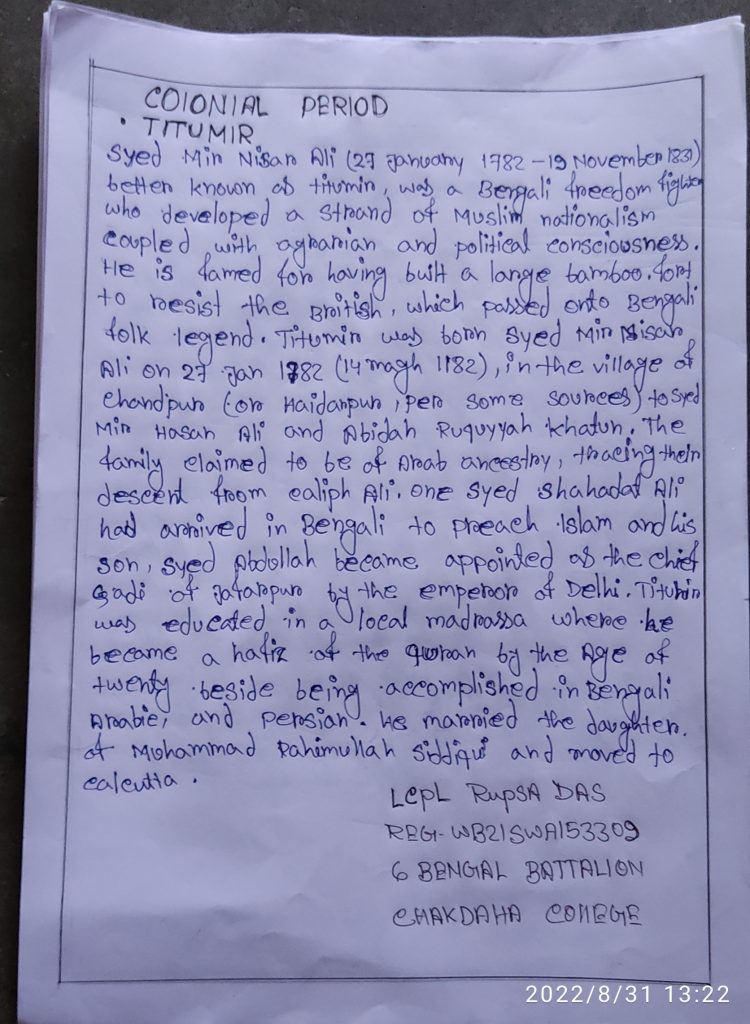 COLONIAL PERIOD
• TITUMIR
Syed Mir Nisar Ali (27 January 1782 - 19 November 1831)
better known as titumir, was a Bengali freedom fighter
who developed a strand of Muslim nationalism
coupled with agrarian and political consciousness.
He is famed for having built a large bamboo fort
to resist the British, which passed onto Bengali
folk legend. Titumir was born Syed Mir Nisar
Ali on 27 Jan 1782 (14 magh 1182), in the village of
Chandpur (or Haidarpur, per some sources) to Syed
Mir Hasan Ali and Abidah Ruquyyah Khatun. The
family claimed to be of Arab ancestry, tracing their
descent from caliph Ali. One Syed Shahadat Ali
had arrived in Bengali to preach Islam and his
son, Syed Abdollah became appointed as the chief
Qadi of Jafarpur by the emperor of Delhi. Titumir
was educated in a local madrassa where he
became a hafiz of the quran by the Age of
twenty beside being accomplished in Bengali
Arabic, and Persian. He married the daughter
of Muhammad Rahimullah Siddiqui and moved to
calcutta.
LCPL RUPSA DAS
REG- WB21SWA153309
6 BENGAL BATTALION
CHAKDAHA COLLEGE
2022/8/31 13:22